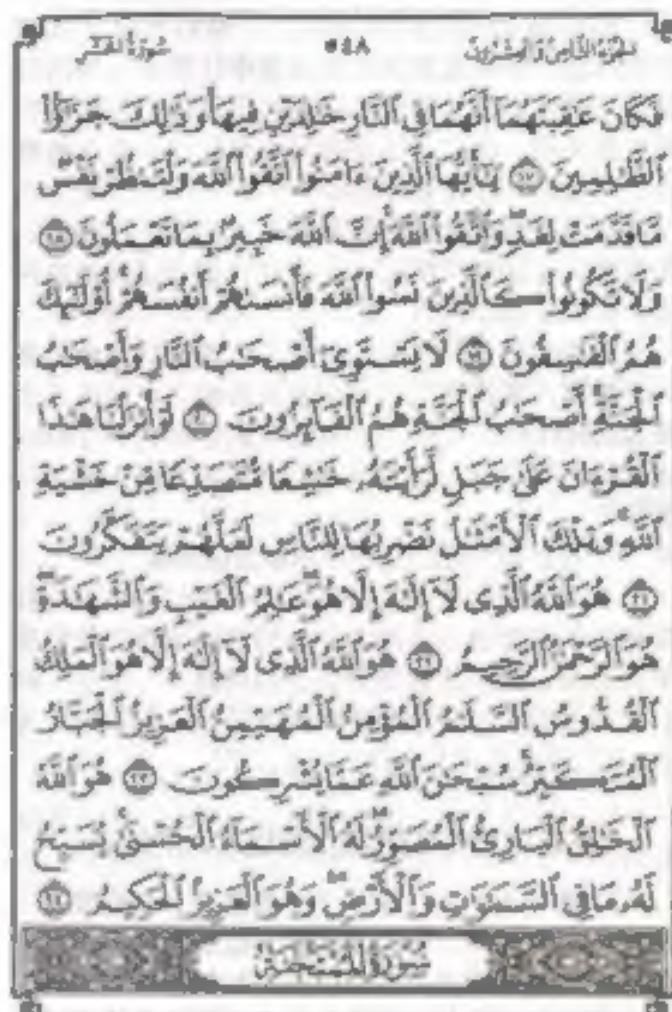 الجزء الثامن والعشرون ٥٤٨ سورة الحشر
فَكَانَ عَٰقِبَتَهُمَآ أَنَّهُمَا فِى ٱلنَّارِ خَٰلِدَيْنِ فِيهَا ۚ وَذَٰلِكَ جَزَٰٓؤُا۟
ٱلظَّٰلِمِينَ ١٧ يَٰٓأَيُّهَا ٱلَّذِينَ ءَامَنُوا۟ ٱتَّقُوا۟ ٱللَّهَ وَلْتَنظُرْ نَفْسٌ
مَّا قَدَّمَتْ لِغَدٍ ۖ وَٱتَّقُوا۟ ٱللَّهَ ۚ إِنَّ ٱللَّهَ خَبِيرٌۢ بِمَا تَعْمَلُونَ ١٨
وَلَا تَكُونُوا۟ كَٱلَّذِينَ نَسُوا۟ ٱللَّهَ فَأَنسَىٰهُمْ أَنفُسَهُمْ ۚ أُو۟لَٰٓئِكَ
هُمُ ٱلْفَٰسِقُونَ ١٩ لَا يَسْتَوِىٓ أَصْحَٰبُ ٱلنَّارِ وَأَصْحَٰبُ
ٱلْجَنَّةِ ۚ أَصْحَٰبُ ٱلْجَنَّةِ هُمُ ٱلْفَآئِزُونَ ٢٠ لَوْ أَنزَلْنَا هَٰذَا
ٱلْقُرْءَانَ عَلَىٰ جَبَلٍ لَّرَأَيْتَهُۥ خَٰشِعًا مُّتَصَدِّعًا مِّنْ خَشْيَةِ
ٱللَّهِ ۚ وَتِلْكَ ٱلْأَمْثَٰلُ نَضْرِبُهَا لِلنَّاسِ لَعَلَّهُمْ يَتَفَكَّرُونَ
٢١ هُوَ ٱللَّهُ ٱلَّذِى لَآ إِلَٰهَ إِلَّا هُوَ ۖ عَٰلِمُ ٱلْغَيْبِ وَٱلشَّهَٰدَةِ ۖ
هُوَ ٱلرَّحْمَٰنُ ٱلرَّحِيمُ ٢٢ هُوَ ٱللَّهُ ٱلَّذِى لَآ إِلَٰهَ إِلَّا هُوَ ٱلْمَلِكُ
ٱلْقُدُّوسُ ٱلسَّلَٰمُ ٱلْمُؤْمِنُ ٱلْمُهَيْمِنُ ٱلْعَزِيزُ ٱلْجَبَّارُ
ٱلْمُتَكَبِّرُ ۚ سُبْحَٰنَ ٱللَّهِ عَمَّا يُشْرِكُونَ ٢٣ هُوَ ٱللَّهُ
ٱلْخَٰلِقُ ٱلْبَارِئُ ٱلْمُصَوِّرُ ۖ لَهُ ٱلْأَسْمَآءُ ٱلْحُسْنَىٰ ۚ يُسَبِّحُ
لَهُۥ مَا فِى ٱلسَّمَٰوَٰتِ وَٱلْأَرْضِ ۖ وَهُوَ ٱلْعَزِيزُ ٱلْحَكِيمُ ٢٤
سُورَةُ ٱلْمُمْتَحَنَةِ